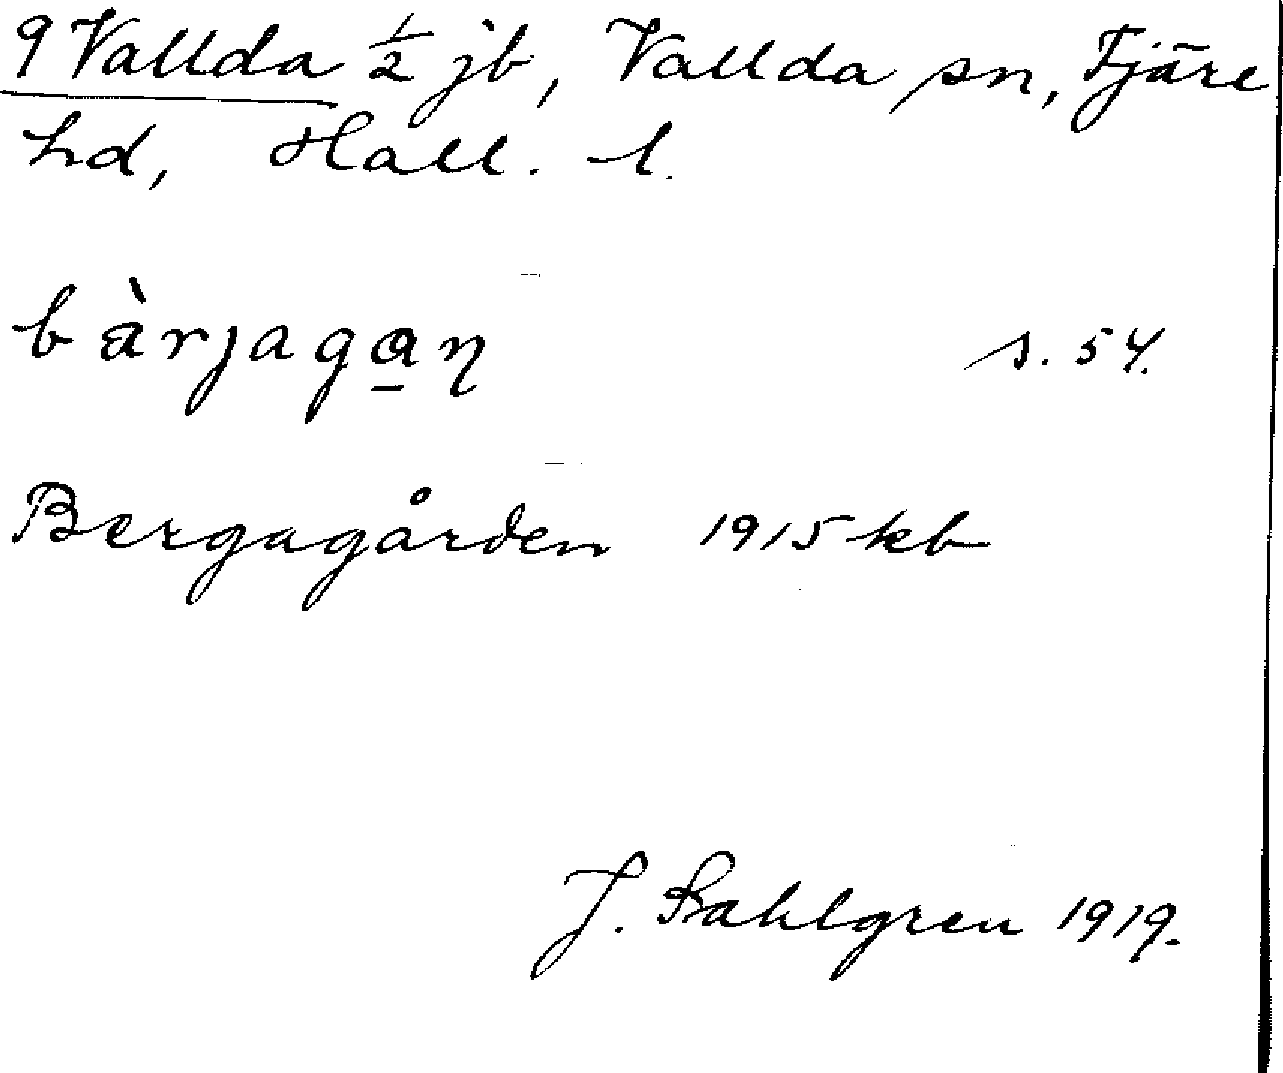 9 Vallda ½ jb, Vallda sn, Fjäre
hd, Hall. l.
bàrjagan̥ s. 54.
Bergagården 1915 kb
J. Sahlgren 1919.